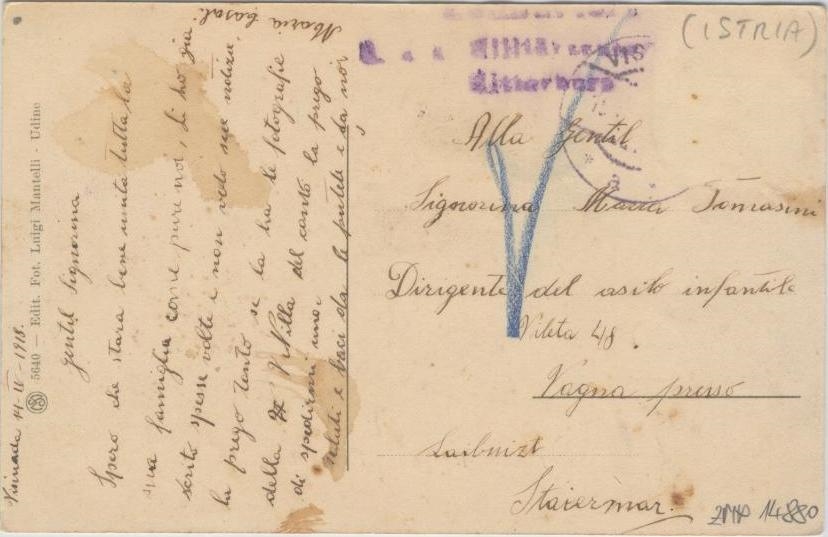 Visinada 14-IV-1918.
gentil Signorina
Spero che stara bene unita tutta la
sua famiglia come pure noi, Li ho gia
scrito spesse volte e non vedo sue notizia,
la prego tanto se la ha le fotografie
della Villa del canto la prego
di spedirmi una
saluti e baci da le putele e da noi
Maria Casali
5640 — Edit. Fot. Luigi Mantelli - Udine
(ISTRIA)
Mitterburg
Alla Gentil
Signorina Maria Tomasini
Dirigente del asilo infantile
Vileta 48.
Vagna presso
Laibnizt
Staiermar.
14880